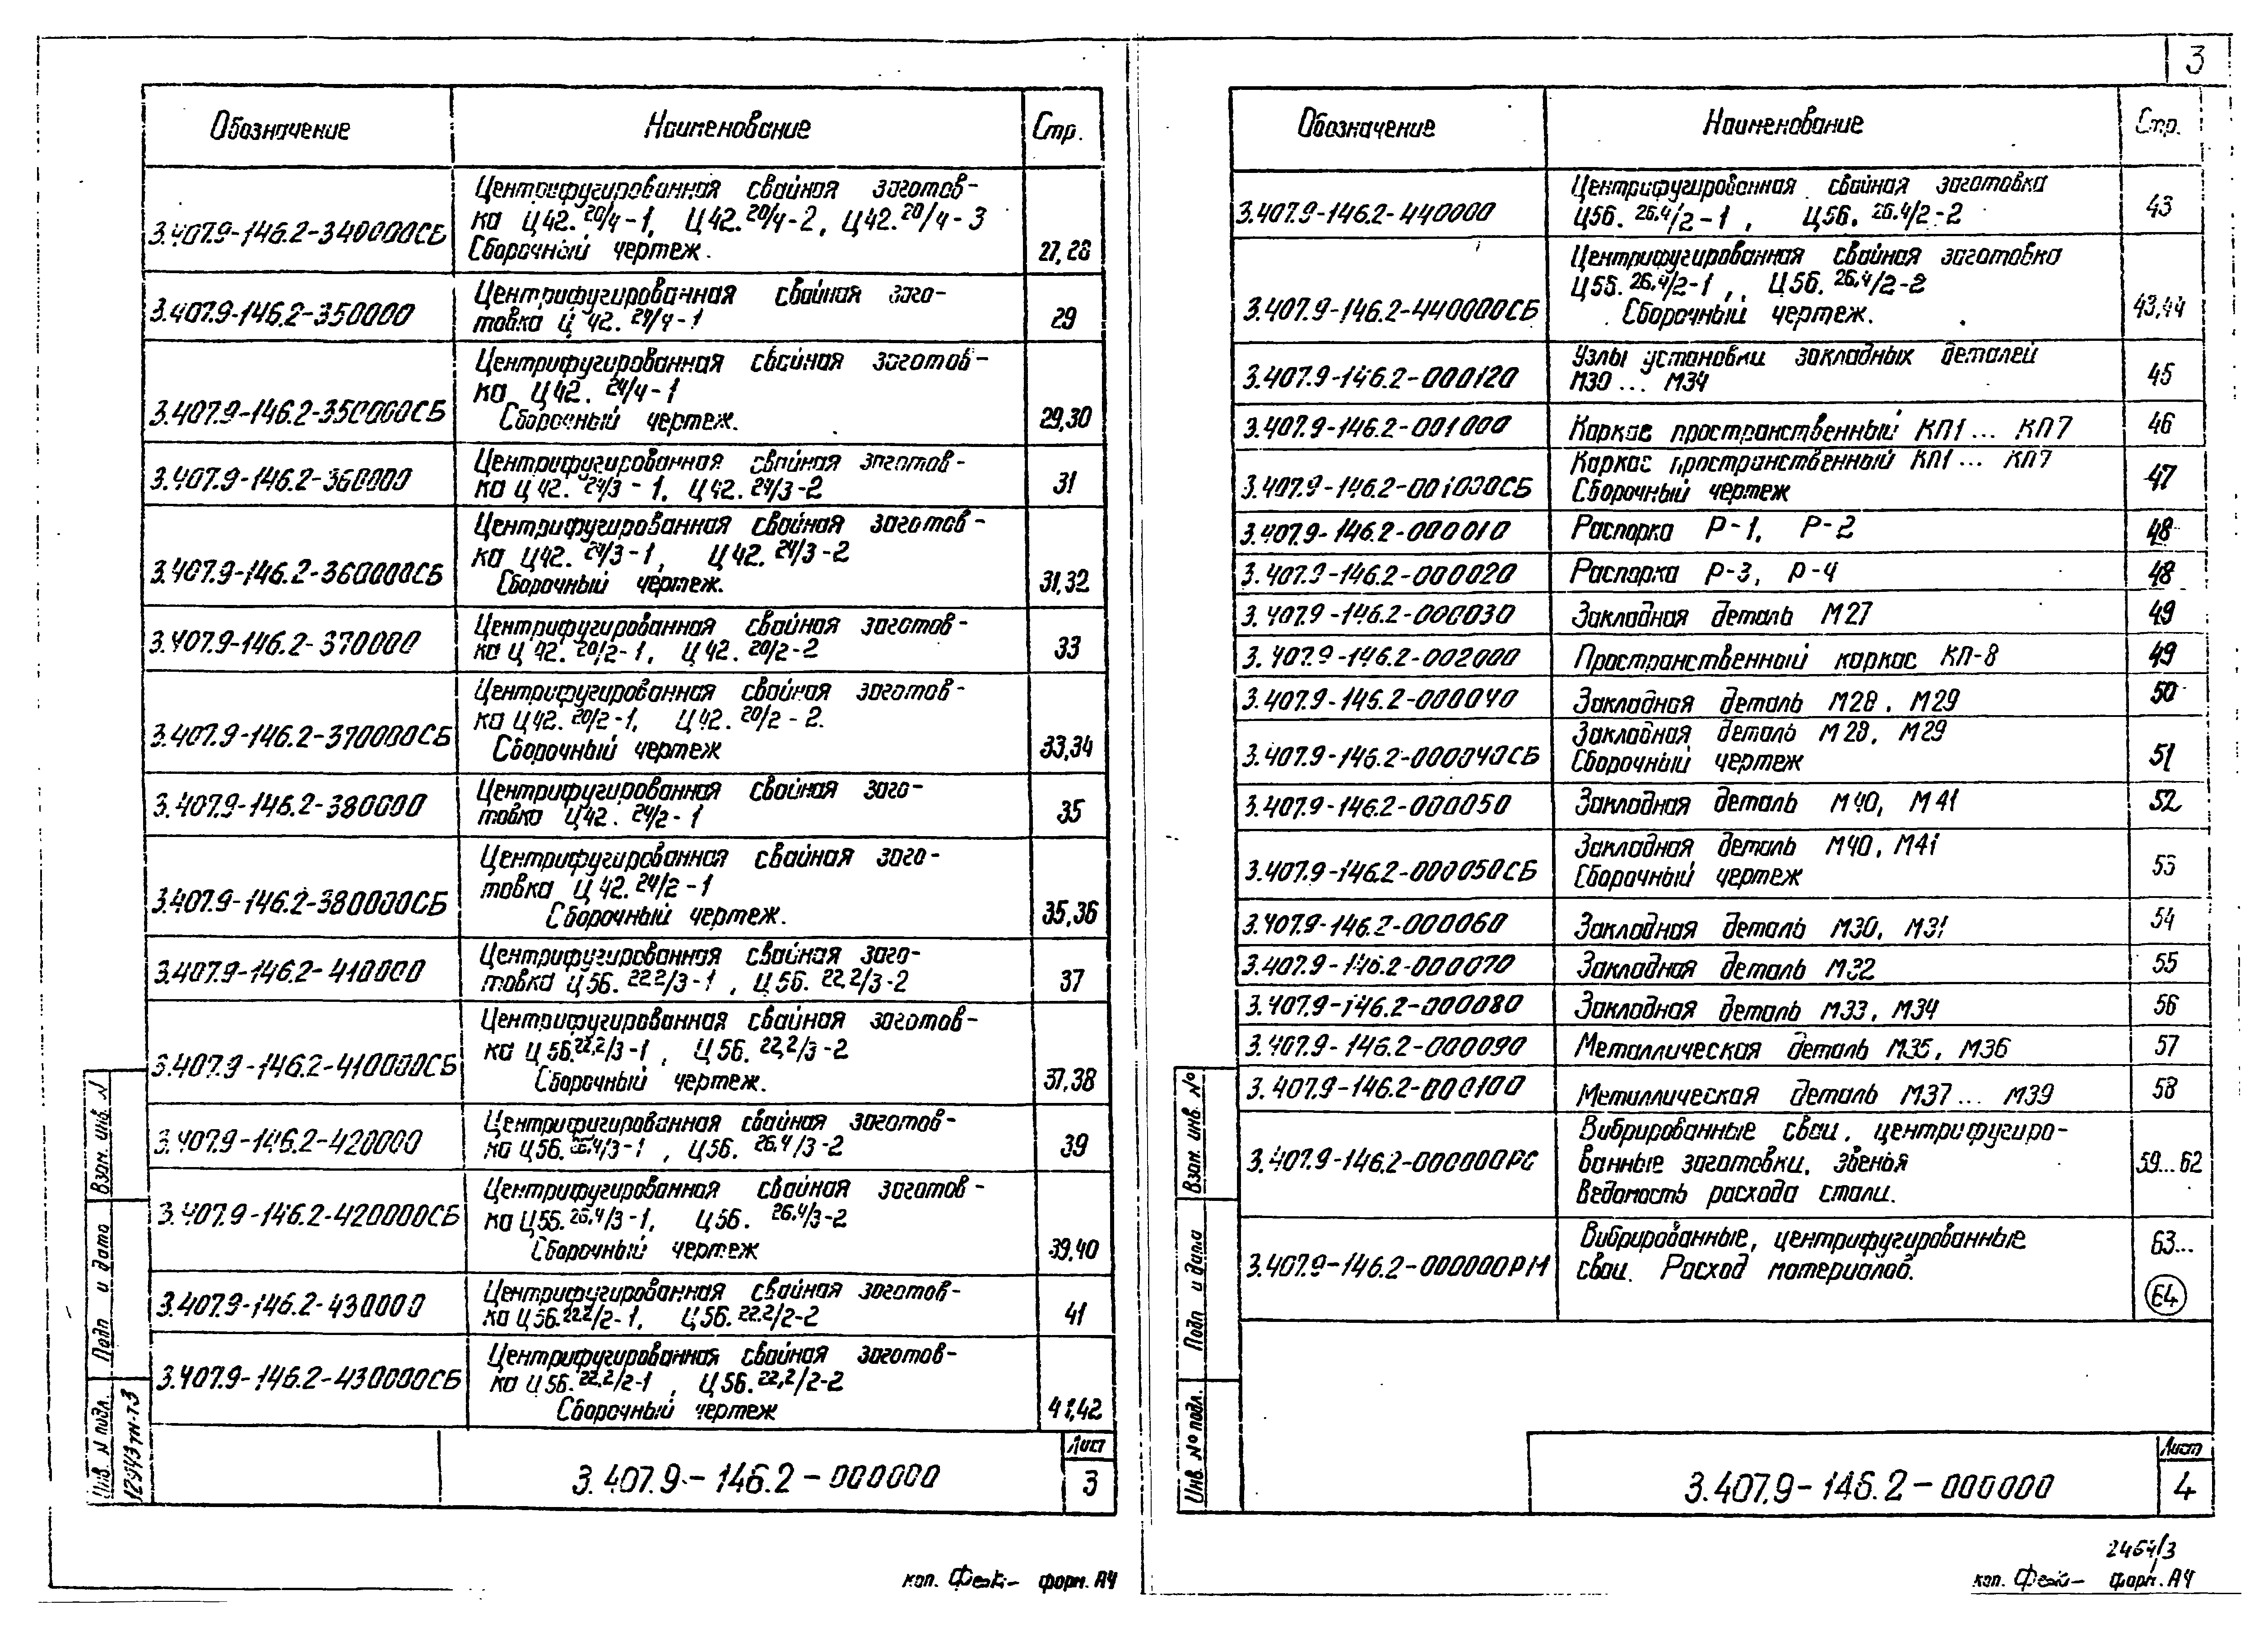 3
Обозначение Наименование Стр.
3.407.9-146.2-340000СБ
Центрифугированная свайная заготов-
ка Ц42.20/4-1, Ц42.20/4-2, Ц42.20/4-3
Сборочный чертеж. 27,28
3.407.9-146.2-350000
Центрифугированная свайная заго-
товка Ц 42. 24/4-1 29
3.407.9-146.2-350000СБ
Центрифугированная свайная заготов-
ка Ц42. 24/4-1
Сборочный чертеж. 29,30
3.407.9-146.2-360000
Центрифугированная свайная заготов-
ка Ц 42. 24/3-1, Ц42. 24/3-2 31
3.407.9-146.2-360000СБ
Центрифугированная свайная заготов-
ка Ц42. 24/3-1, Ц42. 24/3-2
Сборочный чертеж. 31,32
3.407.9-146.2-370000
Центрифугированная свайная заготов-
ка Ц 42. 20/2-1, Ц 42. 20/2-2 33
3.407.9-146.2-370000СБ
Центрифугированная свайная заготов-
ка Ц42. 20/2-1, Ц42. 20/2-2.
Сборочный чертеж 33,34
3.407.9-146.2-380000
Центрифугированная свайная заго-
товка Ц42. 24/2-1 35
3.407.9-146.2-380000СБ
Центрифугированная свайная заго-
товка Ц 42. 24/2-1
Сборочный чертеж. 35,36
3.407.9-146.2-410000
Центрифугированная свайная заго-
товка Ц56. 22.2/3-1, Ц56. 22.2/3-2 37
3.407.9-146.2-410000СБ
Центрифугированная свайная заготов-
ка Ц56.22.2/3-1, Ц56. 22.2/3-2
Сборочный чертеж. 37,38
3.407.9-146.2-420000
Центрифугированная свайная заготов-
ка Ц56. 26.4/3-1, Ц56. 26.4/3-2 39
3.407.9-146.2-420000СБ
Центрифугированная свайная заготов-
ка Ц56. 26.4/3-1, Ц56. 26.4/3-2
Сборочный чертеж 39,40
3.407.9-146.2-430000
Центрифугированная свайная заготов-
ка Ц56.22.2/2-1, Ц56.22.2/2-2 41
3.407.9-146.2-430000СБ
Центрифугированная свайная заготов-
ка Ц56.22.2/2-1, Ц56.22.2/2-2
Сборочный чертеж 41,42
3.407.9-146.2-000000
Лист
3
Взам. инв. N
Подп и дата
Инв. N подл.
12943тм-т3
кап. форм. А4
Обозначение Наименование Стр.
3.407.9-146.2-440000
Центрифугированная свайная заготовка
Ц56. 26.4/2-1, Ц56. 26.4/2-2 43
3.407.9-146.2-440000СБ
Центрифугированная свайная заготовка
Ц56. 26.4/2-1, Ц56. 26.4/2-2
Сборочный чертеж. 43,44
3.407.9-146.2-000120
Узлы установки закладных деталей
М30... М34 45
3.407.9-146.2-001000 Каркас пространственный КП1... КП7 46
3.407.9-146.2-001000СБ
Каркас пространственный КП1... КП7
Сборочный чертеж 47
3.407.9-146.2-000010 Распорка Р-1, Р-2 48
3.407.9-146.2-000020 Распорка Р-3, Р-4 48
3.407.9-146.2-000030 Закладная деталь М27 49
3.407.9-146.2-002000 Пространственный каркас КП-8 49
3.407.9-146.2-000040 Закладная деталь М28, М29 50
3.407.9-146.2-000040СБ
Закладная деталь М28, М29
Сборочный чертеж 51
3.407.9-146.2-000050 Закладная деталь М40, М41 52
3.407.9-146.2-000050СБ
Закладная деталь М40, М41
Сборочный чертеж 53
3.407.9-146.2-000060 Закладная деталь М30, М31 54
3.407.9-146.2-000070 Закладная деталь М32 55
3.407.9-146.2-000080 Закладная деталь М33, М34 56
3.407.9-146.2-000090 Металлическая деталь М35, М36 57
3.407.9-146.2-000100 Металлическая деталь М37... М39 58
3.407.9-146.2-000000РС
Вибрированные сваи, центрифугиро-
ванные заготовки, звенья
Ведомость расхода стали. 59...62
3.407.9-146.2-000000РМ
Вибрированные, центрифугированные
сваи. Расход материалов. 63...
64
3.407.9-146.2-000000
Лист
4
Взам. инв. №
Подп и дата
Инв. № подл.
2464/3
кап. форм. А4